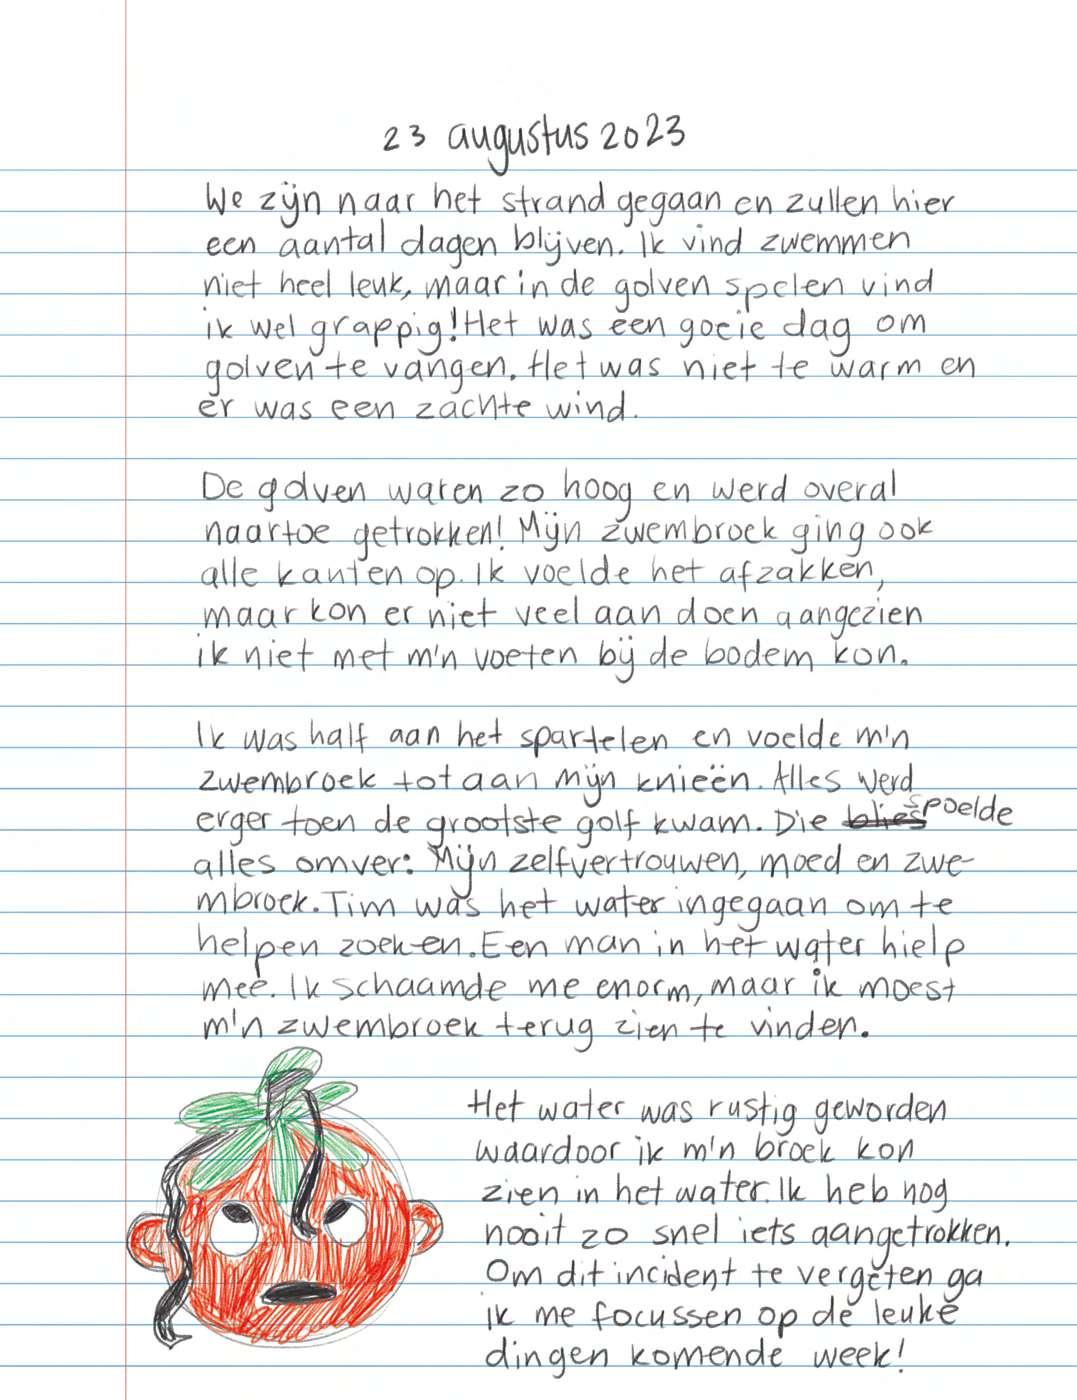 23 augustus 2023
We zijn naar het strand gegaan en zullen hier
een aantal dagen blijven. Ik vind zwemmen
niet heel leuk, maar in de golven spelen vind
ik wel grappig! Het was een goeie dag om
golven te vangen. Het was niet te warm en
er was een zachte wind.
De golven waren zo hoog en werd overal
naartoe getrokken! Mijn zwembroek ging ook
alle kanten op. Ik voelde het afzakken,
maar kon er niet veel aan doen aangezien
ik niet met m'n voeten bij de bodem kon.
Ik was half aan het spartelen en voelde m'n
zwembroek tot aan mijn knieën. Alles werd
erger toen de grootste golf kwam. Die blies spoelde
alles omver: Mijn zelfvertrouwen, moed en zwe-
mbroek. Tim was het water ingegaan om te
helpen zoeken. Een man in het water hielp
mee. Ik schaamde me enorm, maar ik moest
m'n zwembroek terug zien te vinden.
Het water was rustig geworden
waardoor ik m'n broek kon
zien in het water. Ik heb nog
nooit zo snel iets aangetrokken.
Om dit incident te vergeten ga
ik me focussen op de leuke
dingen komende week!